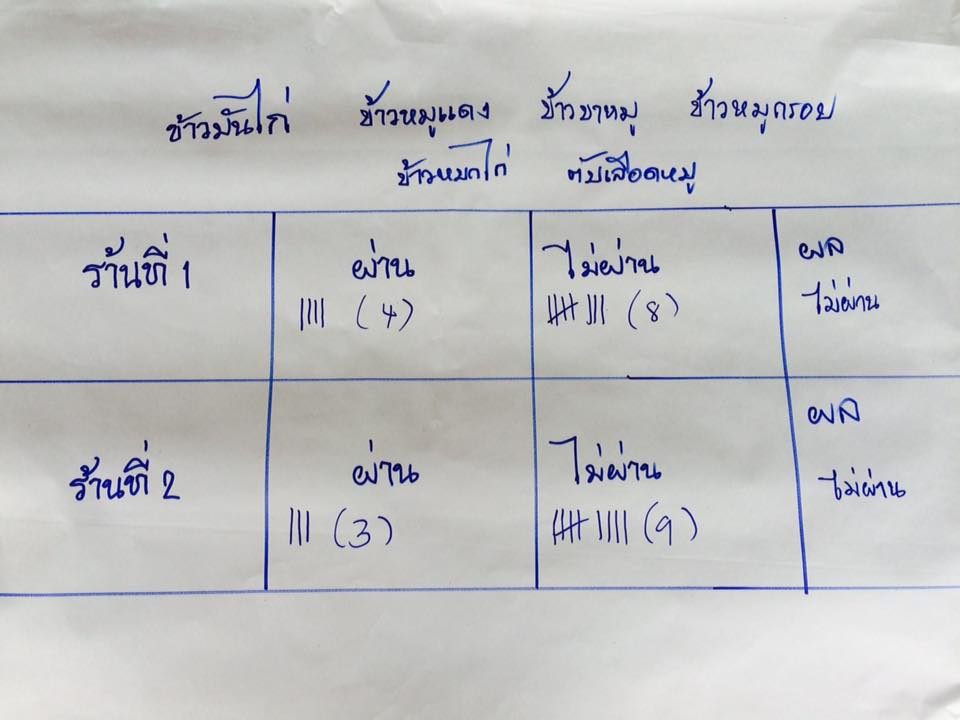 ข้าวมันไก่ ข้าวหมูแดง ข้าวขาหมู ข้าวหมูกรอบ
ข้าวหมกไก่ ตับเลือดหมู
ร้านที่ 1 ผ่าน ไม่ผ่าน ผล
|||| (4) |||| ||| (8) ไม่ผ่าน
ร้านที่ 2 ผ่าน ไม่ผ่าน ผล
||| (3) |||| |||| (9) ไม่ผ่าน